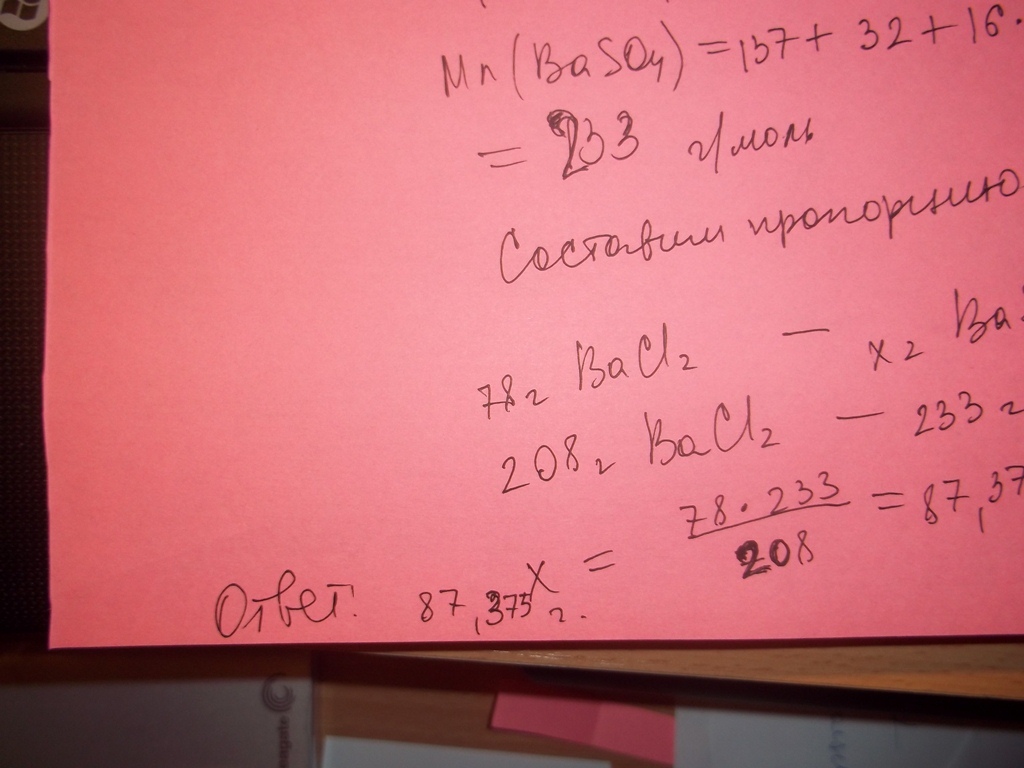 Mn(BaSO4) = 137 + 32 + 16.
= 233 г/моль
Составим пропорцию
78г BaCl2 — x г Ba
208г BaCl2 — 233 г
x = 78 · 233 / 208 = 87,37
Ответ: 87,375 г.